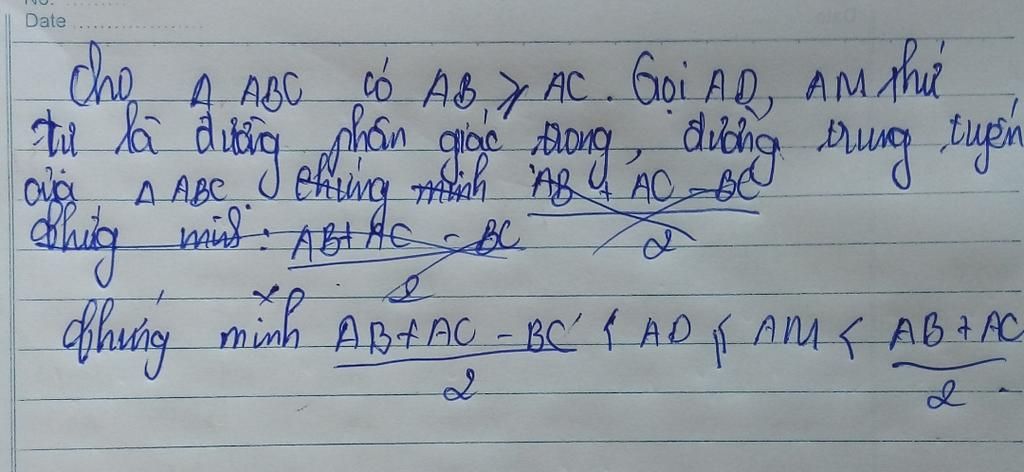 No. ..................
Date ..................
Cho Δ ABC có AB ≥ AC. Gọi AD, AM thứ
tự là đường phân giác trong, đường trung tuyến
của Δ ABC chứng minh AB + AC - BC / 2
Chứng minh: AB + AC - BC / 2
Chứng minh AB + AC - BC / 2 < AD ≤ AM < AB + AC / 2.